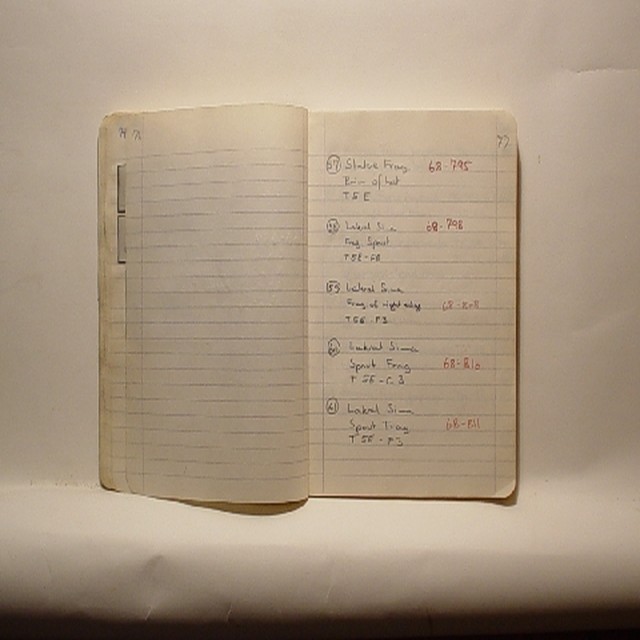 77
57 Statue Frag. 68-795
Rim of hat
T5E
58 Lateral Sima 68-798
Frag. Spout
59 Lateral Sima
Frag. of right edge
T5E-F3
60 Lateral Sima
Spout Frag. 68-810
61 Lateral Sima
Spout Frag 68-811
T5E-F3